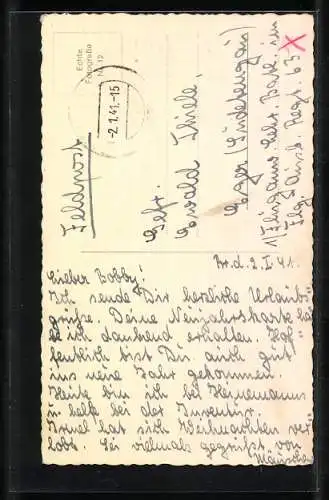 Echte
Fotografie
Nr. 12
-2.1.41.-15
Feldpost
Gefr.
Ewald Thiele,
Eger (Sudetengau)
Flg. Regt. 63
Br. d. 2. I. 41.
Lieber Bobby!
Ich sende Dir herzliche Urlaubs-
grüße. Deine Neujahrskarte hab
ich dankend erhalten. Hof-
fentlich bist Du auch gut
ins neue Jahr gekommen.
Heute bin ich bei Heinemanns
u. helfe bei der Inventur.
Irmel hat sich Weihnachten ver-
lobt. Sei vielmals gegrüßt von
Mäuschen